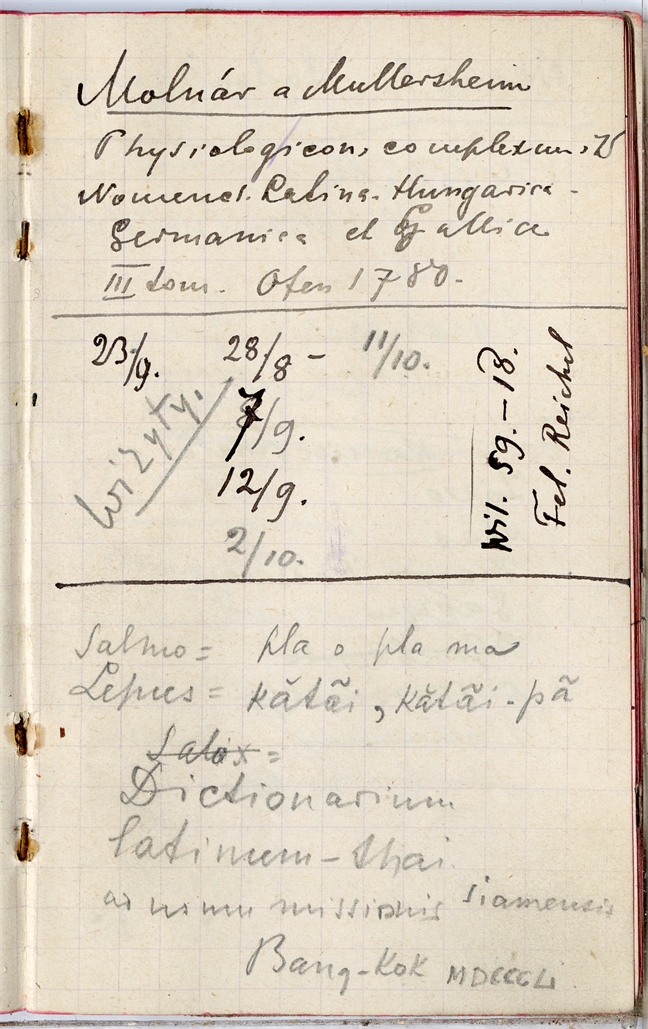 Molnár a Mullersheim
Physiologicon, complexum,
Nomencl. Latina. Hungarica -
Germanica et Gallica
III tom. Ofen 1780.
23/9. 28/8 - 11/10.
/9.
12/9.
2/10.
wizyty.
Wil. 59.-18.
Fel. Reichel
Salmo = pla o pla ma
Lepus = kătãi, kătãi-pã
Salix =
Dictionarium
latinum-thai
ad usum missionis siamensis
Bang-Kok MDCCCL